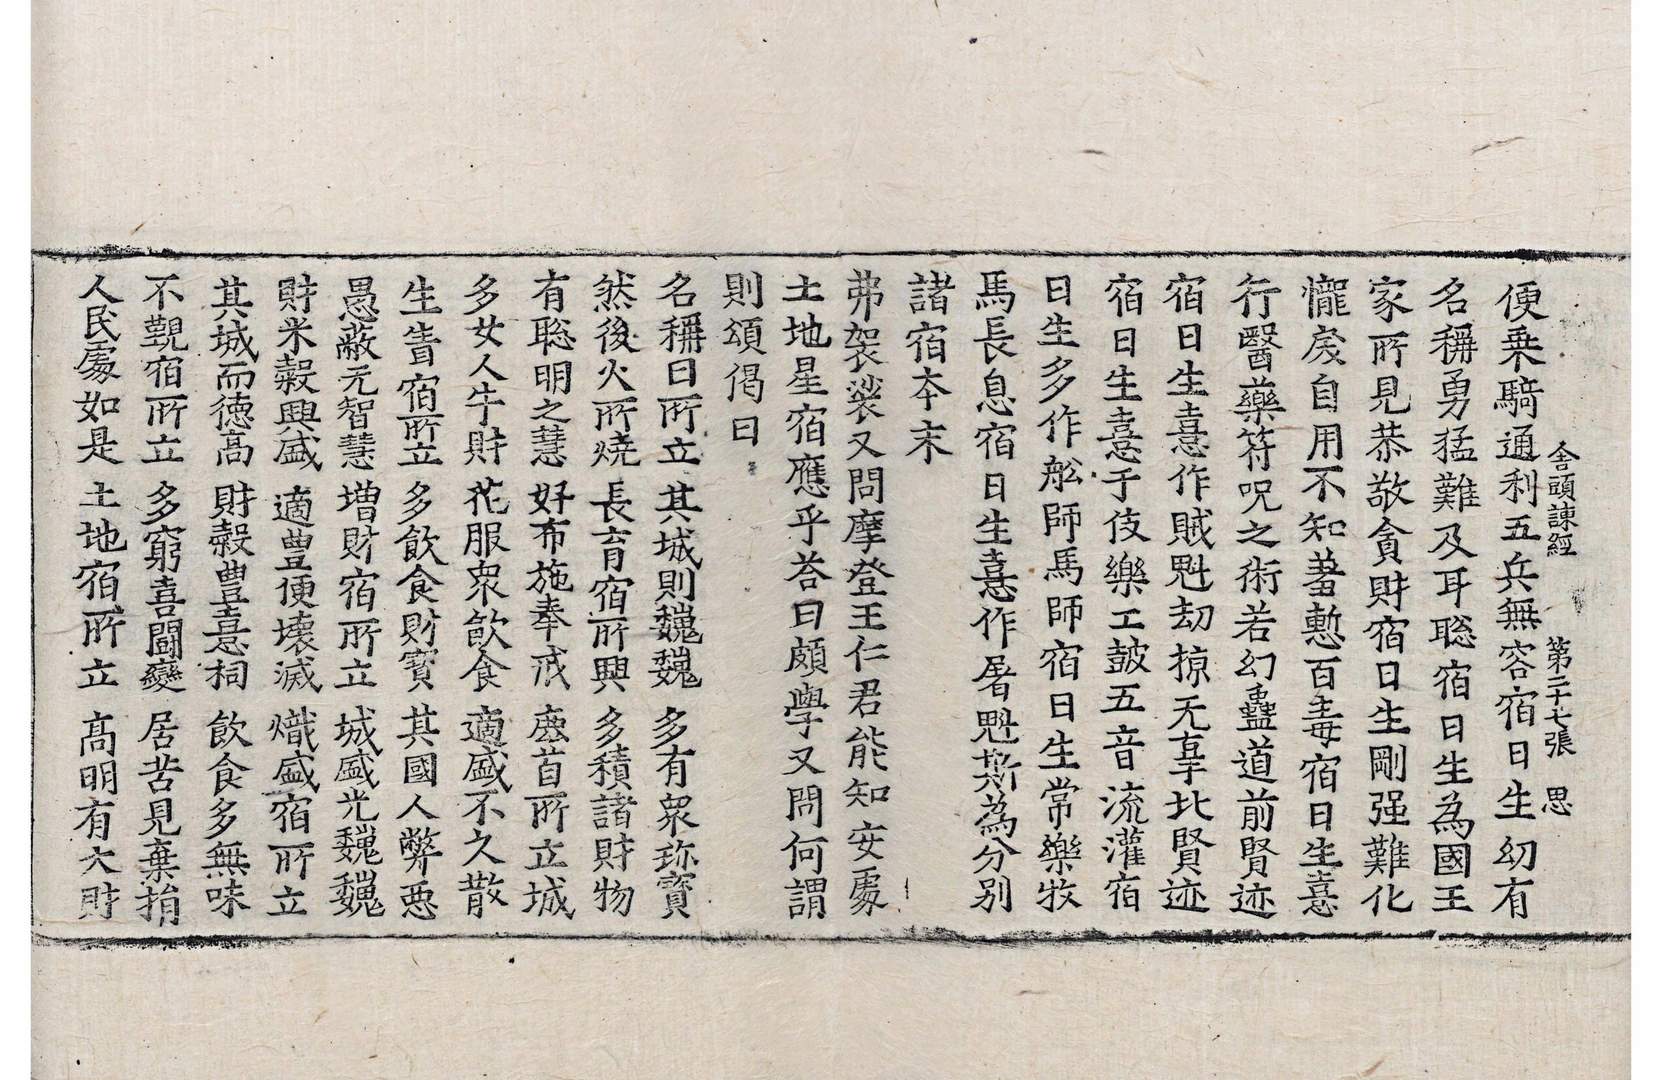 舍頭諫經　第二十七張　思
便乗騎通利五兵無容宿日生幼有
名稱勇猛難及耳聡宿日生為國王
家所見恭敬貪財宿日生剛强難化
㦬戾自用不知羞慙百毒宿日生憙
行醫藥符呪之術若幻蠱道前賢迹
宿日生憙作賊魁劫掠无辜北賢迹
宿日生憙于伎樂工鼓五音流灌宿
日生多作舩師馬師宿日生常樂牧
馬長息宿日生憙作屠魁摲為分別
諸宿夲末
弗袈裟又問摩登王仁君能知安處
土地星宿應乎荅曰頗學又問何謂
則頌偈曰
名稱日所立　其城則巍巍　多有衆珎寶
然後火所燒　長育宿所興　多積諸財物
有聡明之慧　好布施奉戒　鹿首所立城
多女人牛財　花服衆飲食　適盛不久散
生眚宿所立　多飲食財寶　其國人弊惡
愚蔽无智慧　増財宿所立　城盛光巍巍
財米糓興盛　適豊便壊滅　熾盛宿所立
其城而德高　財穀豊憙祠　飲食多無味
不覩宿所立　多窮喜鬪變　居苦見棄捐
人民處如是　土地宿所立　高明有大財